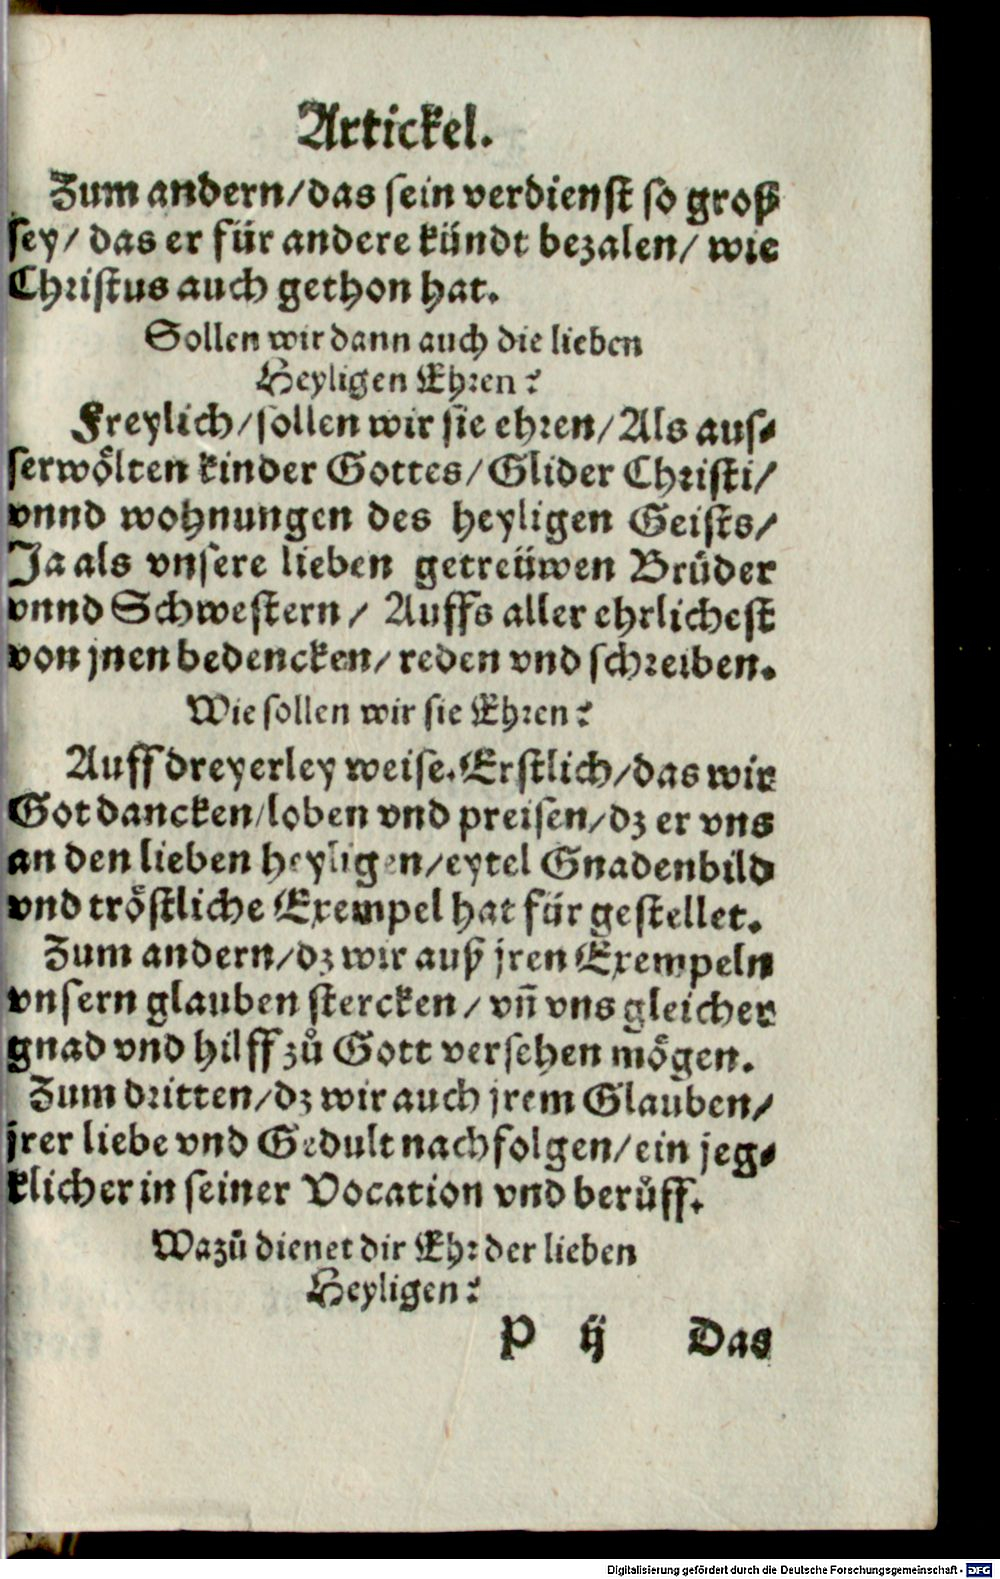 Artickel.
Zum andern/das sein verdienst so groß
sey/ das er für andere kündt bezalen/ wie
Christus auch gethon hat.
Sollen wir dann auch die lieben
Heyligen Ehren?
Freylich/sollen wir sie ehren/Als aus-
serwölten kinder Gottes/Glider Christi/
vnnd wohnungen des heyligen Geists/
Ja als vnsere lieben getreüwen Brüder
vnnd Schwestern/ Auffs aller ehrlichest
von jnen bedencken/reden vnd schreiben.
Wie sollen wir sie Ehren?
Auff dreyerley weise. Erstlich/das wir
Got dancken/loben vnd preisen/dz er vns
an den lieben heyligen/eytel Gnadenbild
vnd tröstliche Exempel hat für gestellet.
Zum andern/dz wir auß jren Exempeln
vnsern glauben stercken/ vn̄ vns gleicher
gnad vnd hilff zů Gott versehen mögen.
Zum dritten/dz wir auch jrem Glauben/
jrer liebe vnd Gedult nachfolgen/ein jeg-
klicher in seiner Vocation vnd berůff.
Wazů dienet dir Ehr der lieben
Heyligen?
P ij Das
Digitalisierung gefördert durch die Deutsche Forschungsgemeinschaft - DFG